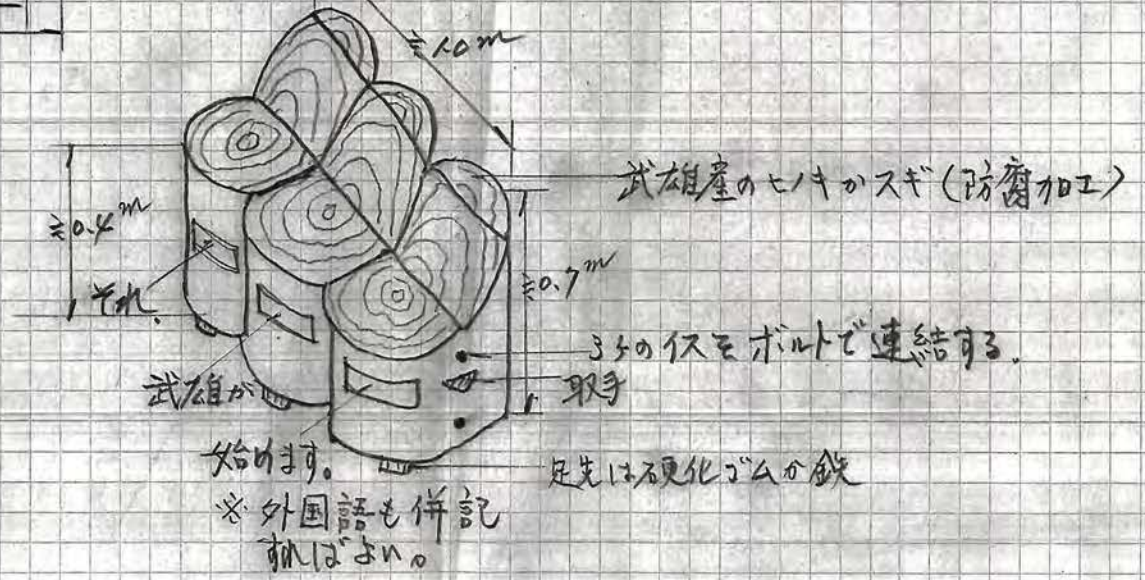 ≒1.0m
武雄産のヒノキかスギ(防腐加工)
≒0.4m
≒0.7m
それ、
3ケのイスをボルトで連結する。
武雄が
取手
始めます。
足先は硬化ゴムか鉄
※外国語も併記
すればよい。